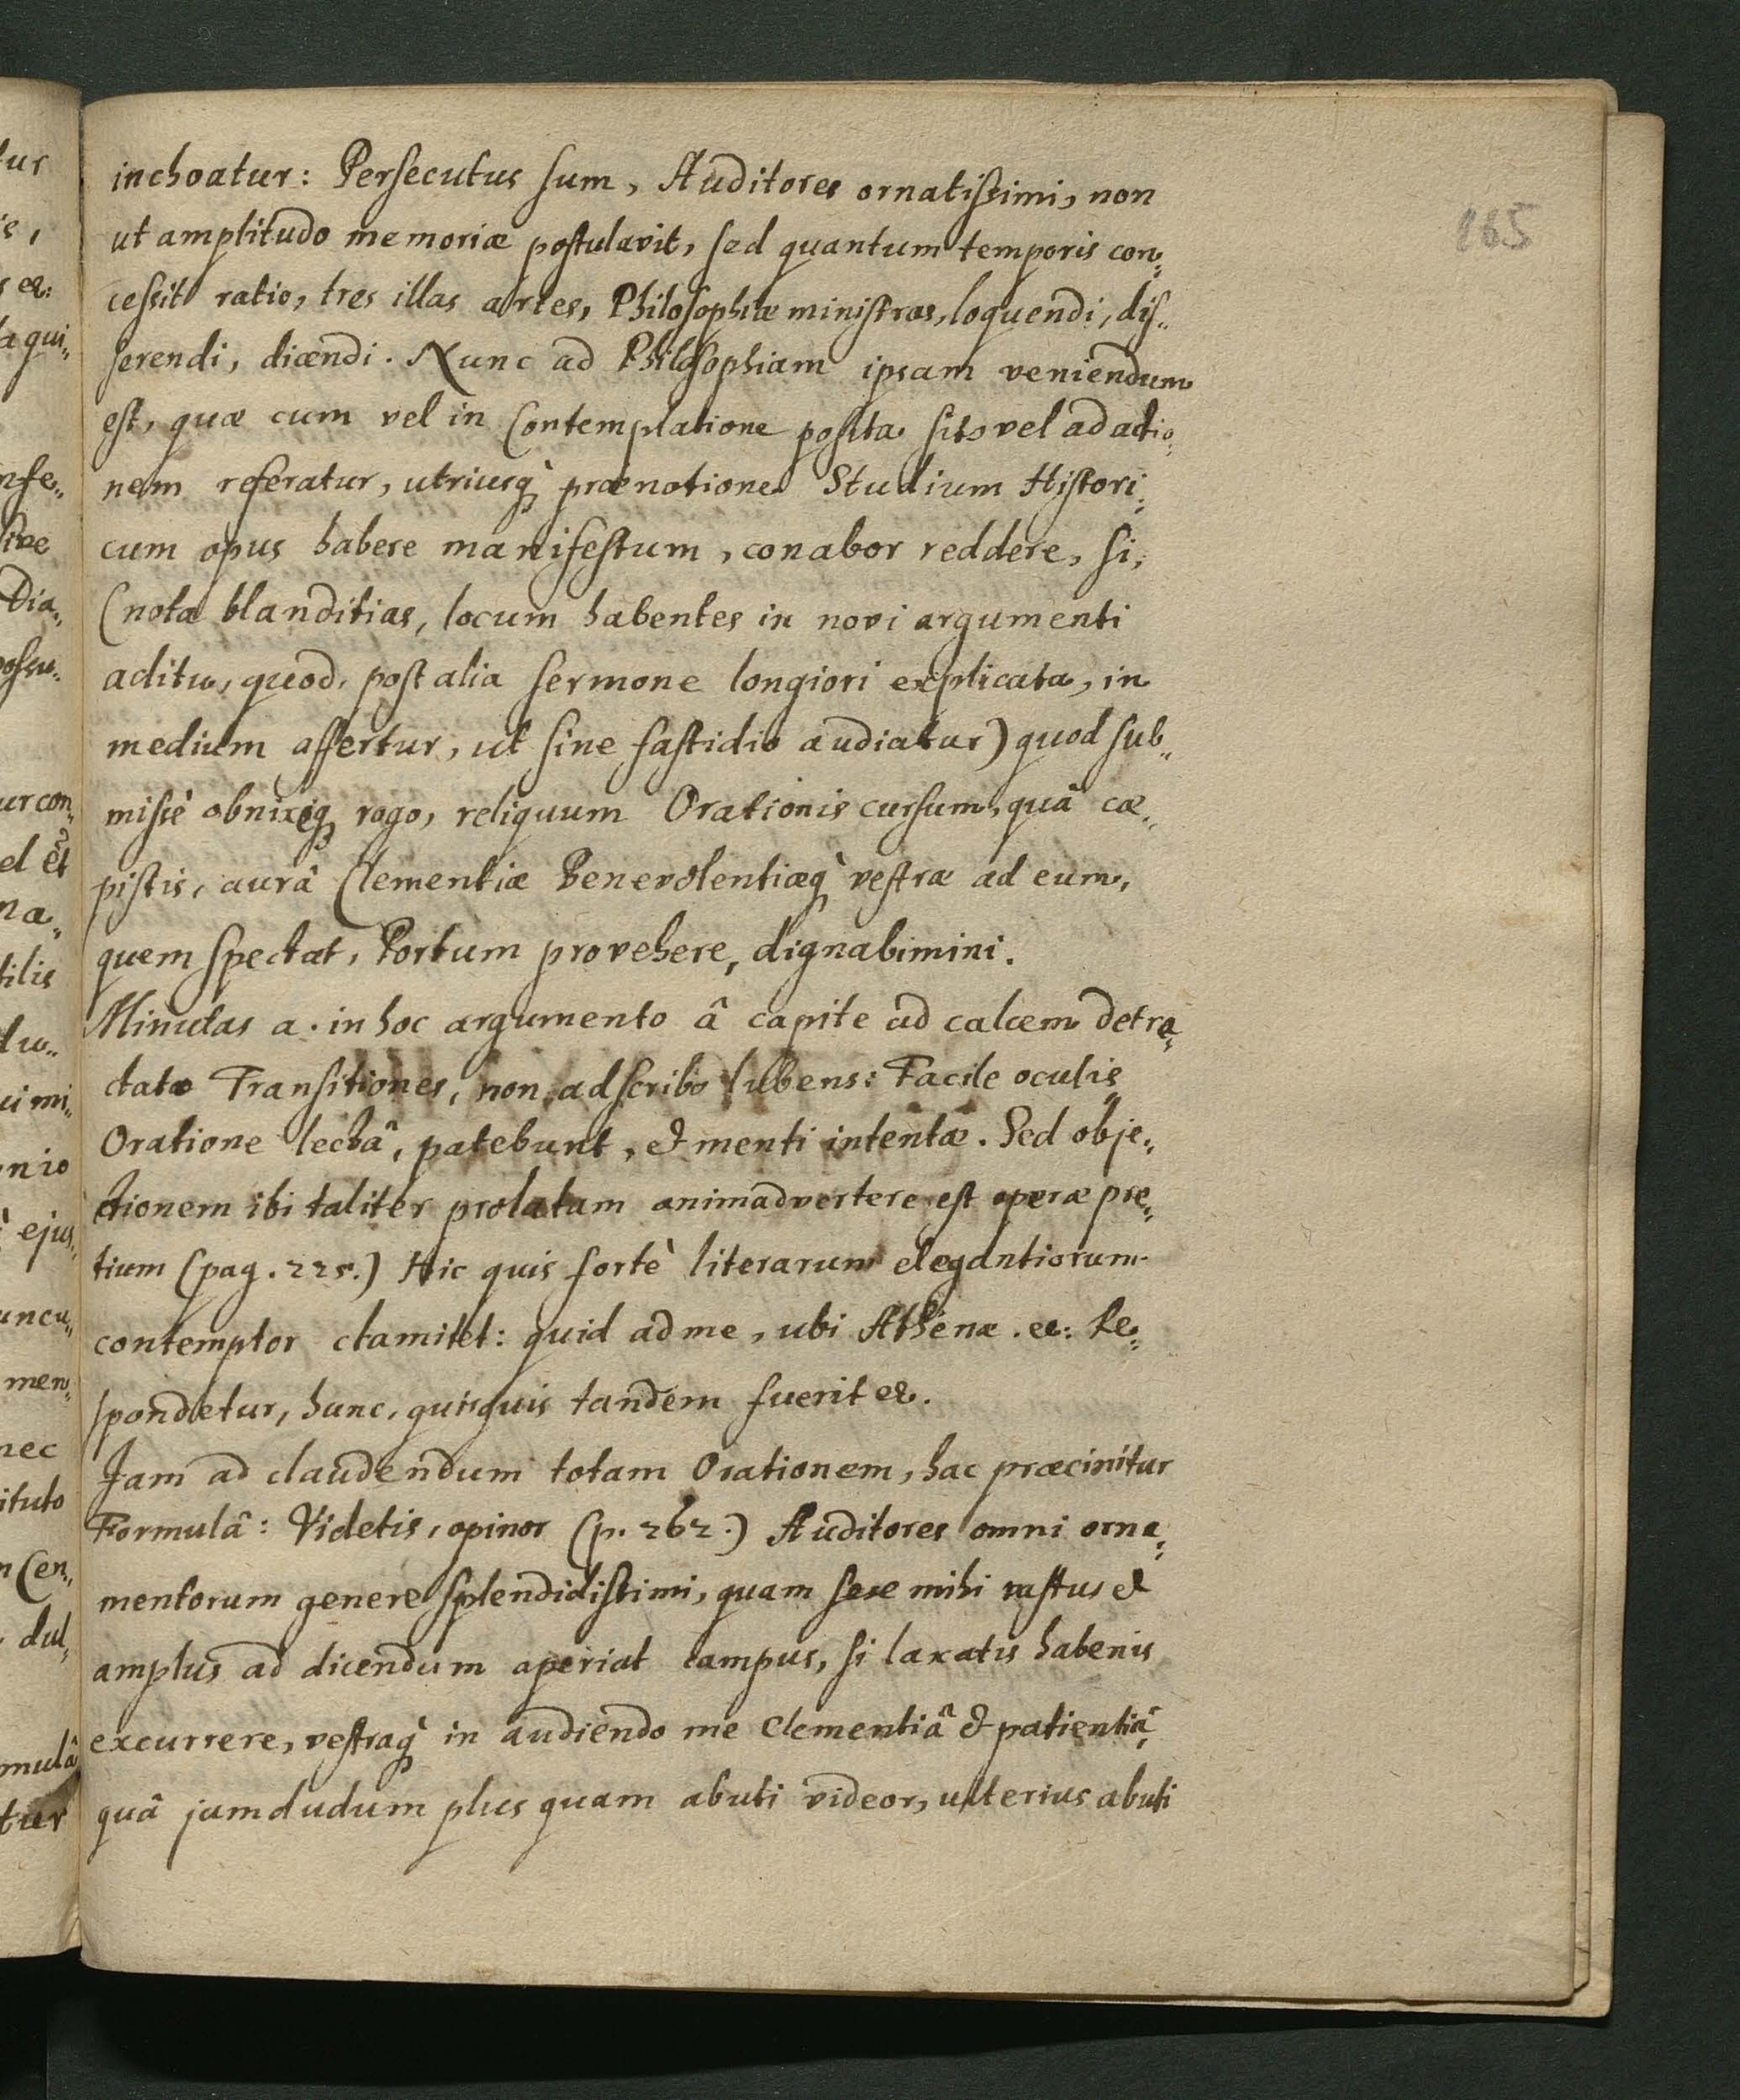 inchoatur: Persecutus sum, Auditores ornatissimi, non
165
ut amplitudo memoriæ postulavit, sed quantum temporis con„
cessit ratio, tres illas artes, Philosophiæ ministras, loquendi, dis„
serendi, dicendi. Nunc ad Philosophiam ipsam veniendum
est, quæ cum vel in Contemplatione posita sit, vel ad actio„
nem referatur, utriusq̀ prænotione Studium Histori„
cum opus habere manifestum, conabor reddere, si,
(nota blanditias, locum habentes in novi argumenti
aditu, quod, post alia sermone longiori explicata, in
medium affertur, ut sine fastidio audiatur) quod sub„
missè obnixeq rogo, reliquum Orationis cursum, quâ cæ„
pistis, aurâ Clementiæ Benevolentiæq̀ vestræ ad eum,
quem spectat, Portum provehere, dignabimini.
Minutas a. in hoc argumento â capite ad calcem detra„
ctatæ Transitiones, non adscribo lubens: Facile oculis
Oratione lectâ, patebunt, & menti intentæ. Sed obje„
ctionem ibi taliter prolatam animadvertere est operæ pre„
tium (pag. 225.) Hic quis fortè literarum elegantiorum
contemptor clamitet: quid ad me, ubi Athenæ. ec: Re„
spondetur, hunc, quisquis tandem fuerit ec.
Jam ad claudendum totam Orationem, hac præcinitur
Formulâ: Videtis, opinor (p. 262.) Auditores omni orna„
mentorum genere splendidissimi, quam sese mihi vastus &
amplus ad dicendum aperiat campus, si laxatis habenis
excurrere, vestraq̀ in audiendo me Clementiâ & patientiâ,
quâ jamdudum plus quam abuti videor, ulterius abuti